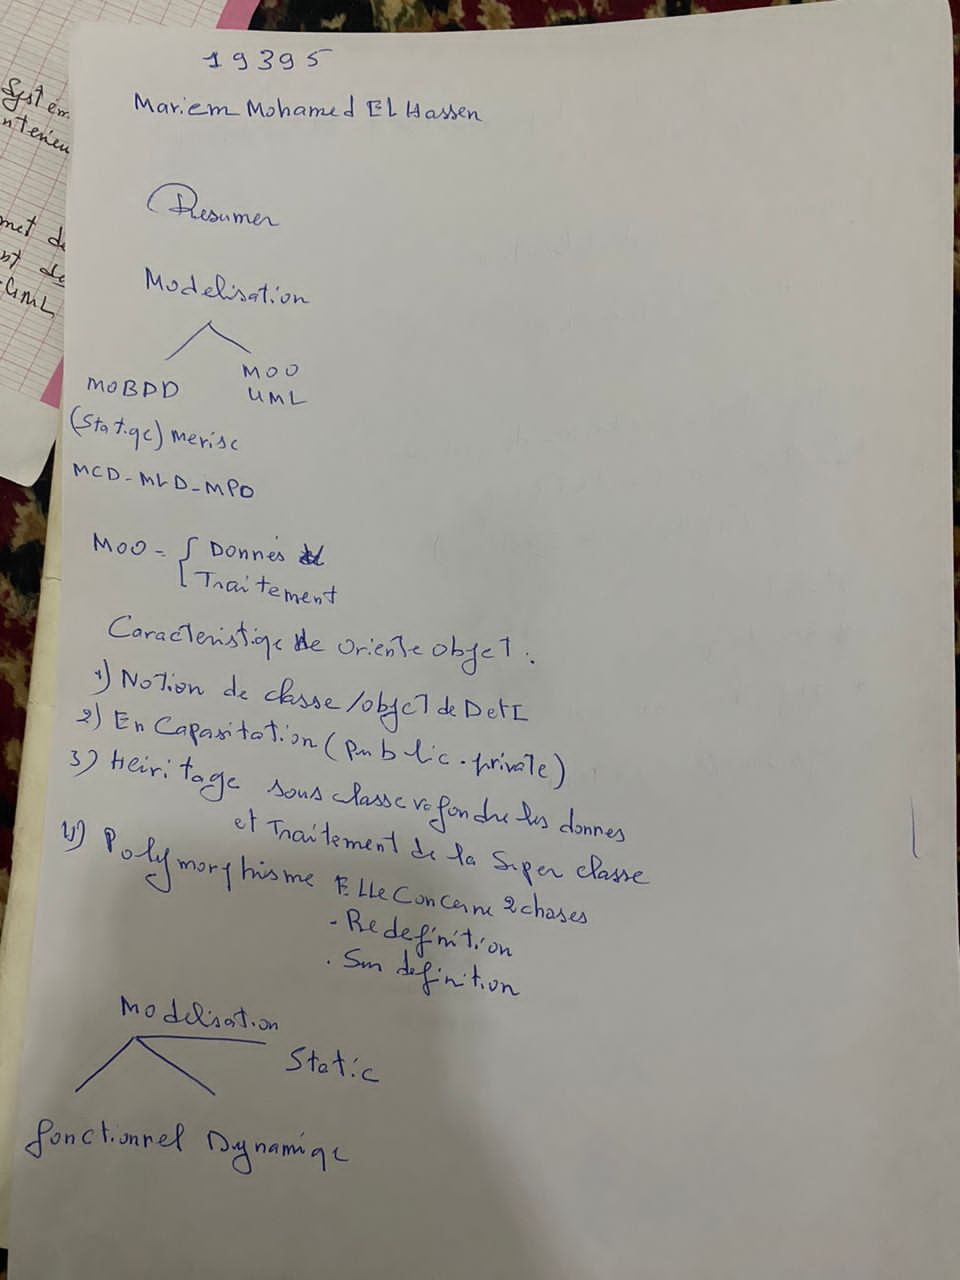 19395
Mariem Mohamed El Hassen
Resumer
Modelisation
MOBDD
MOO
UML
(Statiqe) merise
MCD-MLD-MPD
MOO = { Donnés
Traitement
Caracteristiqe de oriente objet :
1) Notion de classe /objet de DetI
2) En Capasitation (public.private)
3) Heiritage sous classe refondre les donnes
et Traitement de la Super classe
4) Polymorphisme Elle Concerne 2 choses
- Redefinition
. Sur definition
Modelisation
Static
fonctionnel Dynamiqe
System
nterieu
met de
nt de
UML